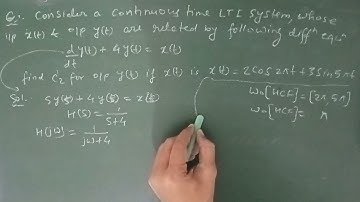 Q:- Consider a continuous time LTI system, whose
i/p x(t) & o/p y(t) are related by following diffn equn
d/dt y(t) + 4y(t) = x(t)
find C2 for o/p y(t) if x(t) is x(t) = 2cos2πt + 3sin5πt
Soln:- sy(s) + 4y(s) = x(s)
H(s) = 1/(s+4)
H(jω) = 1/(jω+4)
ω0 = [HCF] = [2π, 5π]
ω0 = [HCF] = π